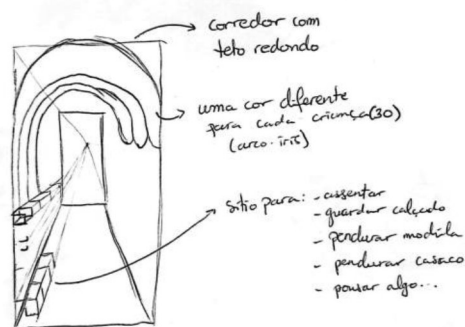 corredor com
teto redondo
uma cor diferente
para cada criança (30)
(arco-iris)
sítio para: - assentar
- guardar calçado
- pendurar mochila
- pendurar casaco
- pousar algo...